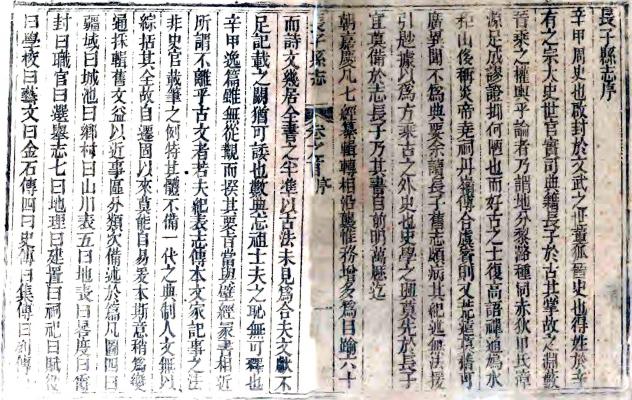 長子縣志序
辛甲周史也啟封於文武之世董狐晉史也得姓於辛
有之宗大史世官實司典籍長子於古其掌故之淵藪
晉乘之權輿乎論者乃謂地分黎路種同赤狄甲氏漳
源足成謬證抑何陋也而好古之士復高語禪通為水
和山後稱炎帝堯祠丹嶺傳合虞賓則又荒遠
廣異聞不為典要余讀長子舊志頗病其紀述無法援
引趂據以為方乘古之外史也史學之興莫先於長子
宜莫備於志長子乃其書自前明萬厯迄
朝嘉慶凡七經纂輯轉相沿襲惟務增多為目踰六十
而詩文幾居全書之半準以古法未見為合夫文獻不
足記載之闕猶可諉也數典忘祖士夫之恥無可釋也
辛甲逸篇雖無從覩而揆其要旨當與壁經冢書相近
所謂不離乎古文者若夫紀表志傳本文家記事之法
非史官載筆之例特其體不備一代之典制人文無以
綜括其全故自遷固以來莫能自易爰本斯意稍為變
通採輯舊文益以近事區分類次備述於篇凡圖四曰
疆域曰城池曰鄉村曰山川表五曰地表曰晷度曰
封曰職官曰選舉志七曰地理曰建置曰祠祀曰賦役
曰學校曰藝文曰金石傳四曰史傳曰集傳曰列傳
長子縣志
卷之首
序